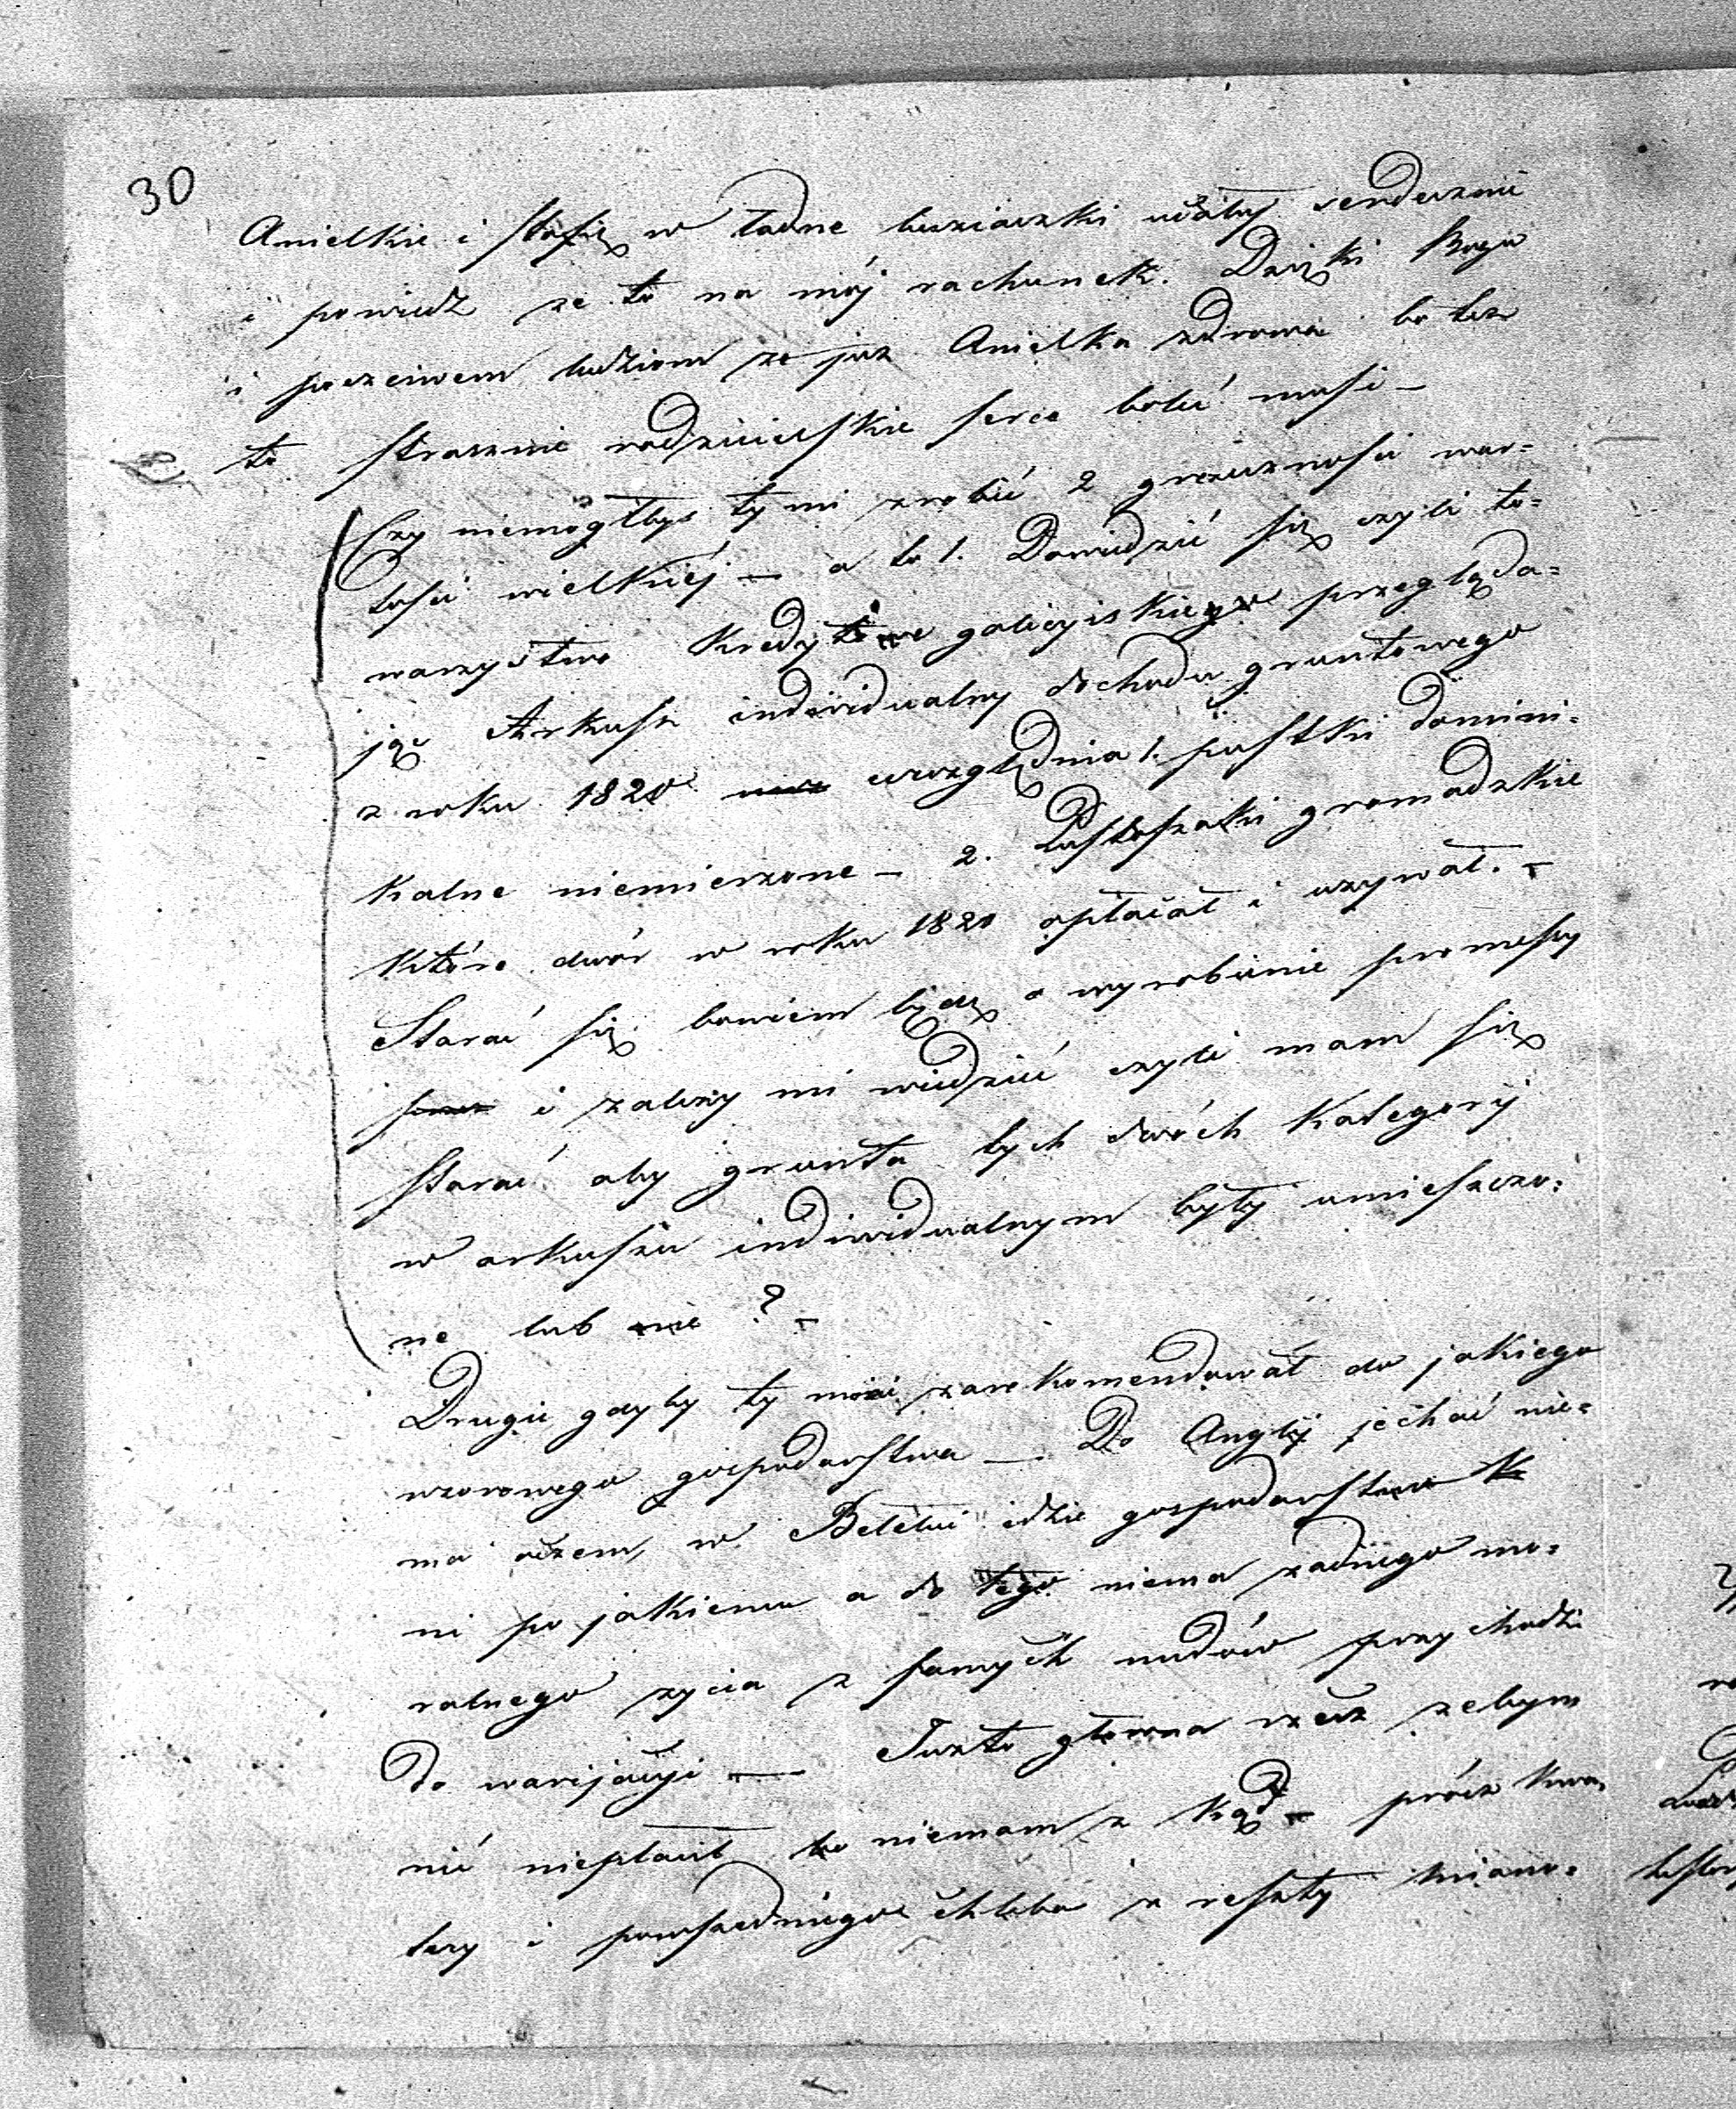 30
Anielkie i Stasię w ładne buziaczki ucałuj serdecznie
i powiedz że to na mój rachunek. Dzięki Bogu
i poczciwem ludziom że już Anielka zdrowa bo też
to strasznie rodzicielskie serce boleć musi —
Czy niemógłbyś ty mi zrobić 2 grzeczności war=
tości wielkiéj — a to 1. Dowiedzić się czyli to=
warzystwo Kredytowe galicyiskiego przegląda=
jąc Arkusz indiwidualny dochodu gruntowego
z roku 1820 uwzględnia 1. pustki domini=
kalne niemierzone — 2. Pustoszałki gromadzkie
które dwór w roku 1820 opłacał i używał. —
Starać się bowiem będę o wyrobienie promesy
i zależy mi wiedzić czyli mam się
starać aby grunta tych dwóch Kategoryj
w arkuszu indiwidualnym były umieszczo=
ne lub nie ? —
Drugie gdyby ty mnie zarekomendował do jakiego
wzorowego gospodarstwa — Do Anglij jechać nie=
ma oczem, w Bełełui idzie gospodarstwo
ni po jakiemu a do tego niema żadnego mo=
ralnego życia z samych nudów przychodzi
do waryjacyi — Jużto główna rzecz żebym
nić niepłacił bo niemam z kąd — prócz kwa=
tery i powszedniego chleba z reszty miano=